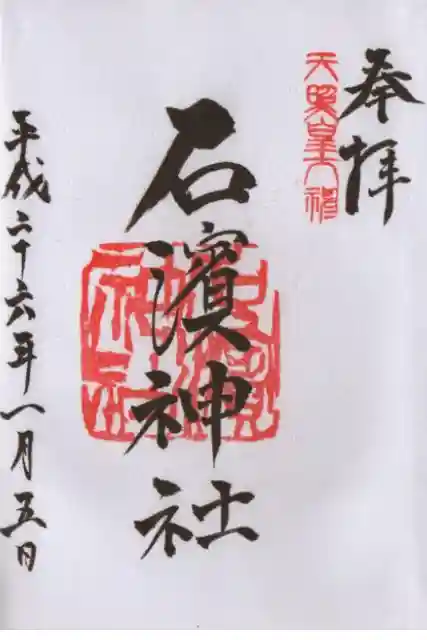 奉拝
天照皇大神
石濵神社
平成二十六年一月五日